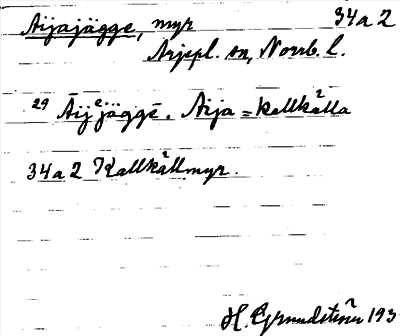 Aijajägge, myr 34a2
Arjepl. sn, Norrb. l.
29 Āijejäggē. Aija = kallkälla
34a2 Kallkällmyr.
H. Grundström 193